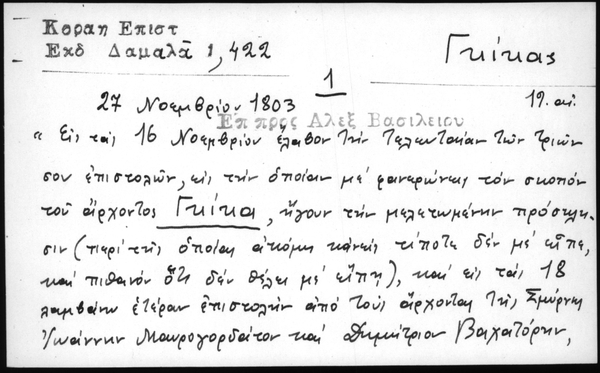 Κοραη Επιστ
Εκδ Δαμαλᾶ 1, 422
Γκίκας
1
19. αἰ.
27 Νοεμβρίου 1803
Επ προς Αλεξ Βασιλειου
" Εἰς τὰς 16 Νοεμβρίου ἔλαβον τὴν τελευταίαν τῶν τριῶν
σου ἐπιστολῶν, εἰς τὴν ὁποίαν μὲ φανερώνεις τὸν σκοπὸν
τοῦ ἄρχοντος Γκίκα, ἤγουν τὴν μελετωμένην πρόσκλη-
σιν (περὶ τῆς ὁποίας ἀκόμη κανεὶς τίποτε δὲν μὲ εἶπε,
καὶ πιθανὸν ὅτι δὲν θέλει μὲ εἴπῃ), καὶ εἰς τὰς 18
λαμβάνω ἑτέραν ἐπιστολὴν ἀπὸ τοὺς ἄρχοντας τῆς Σμύρνης
Ἰωάννην Μαυρογορδάτον καὶ Δημήτριον Βαχατόρην,